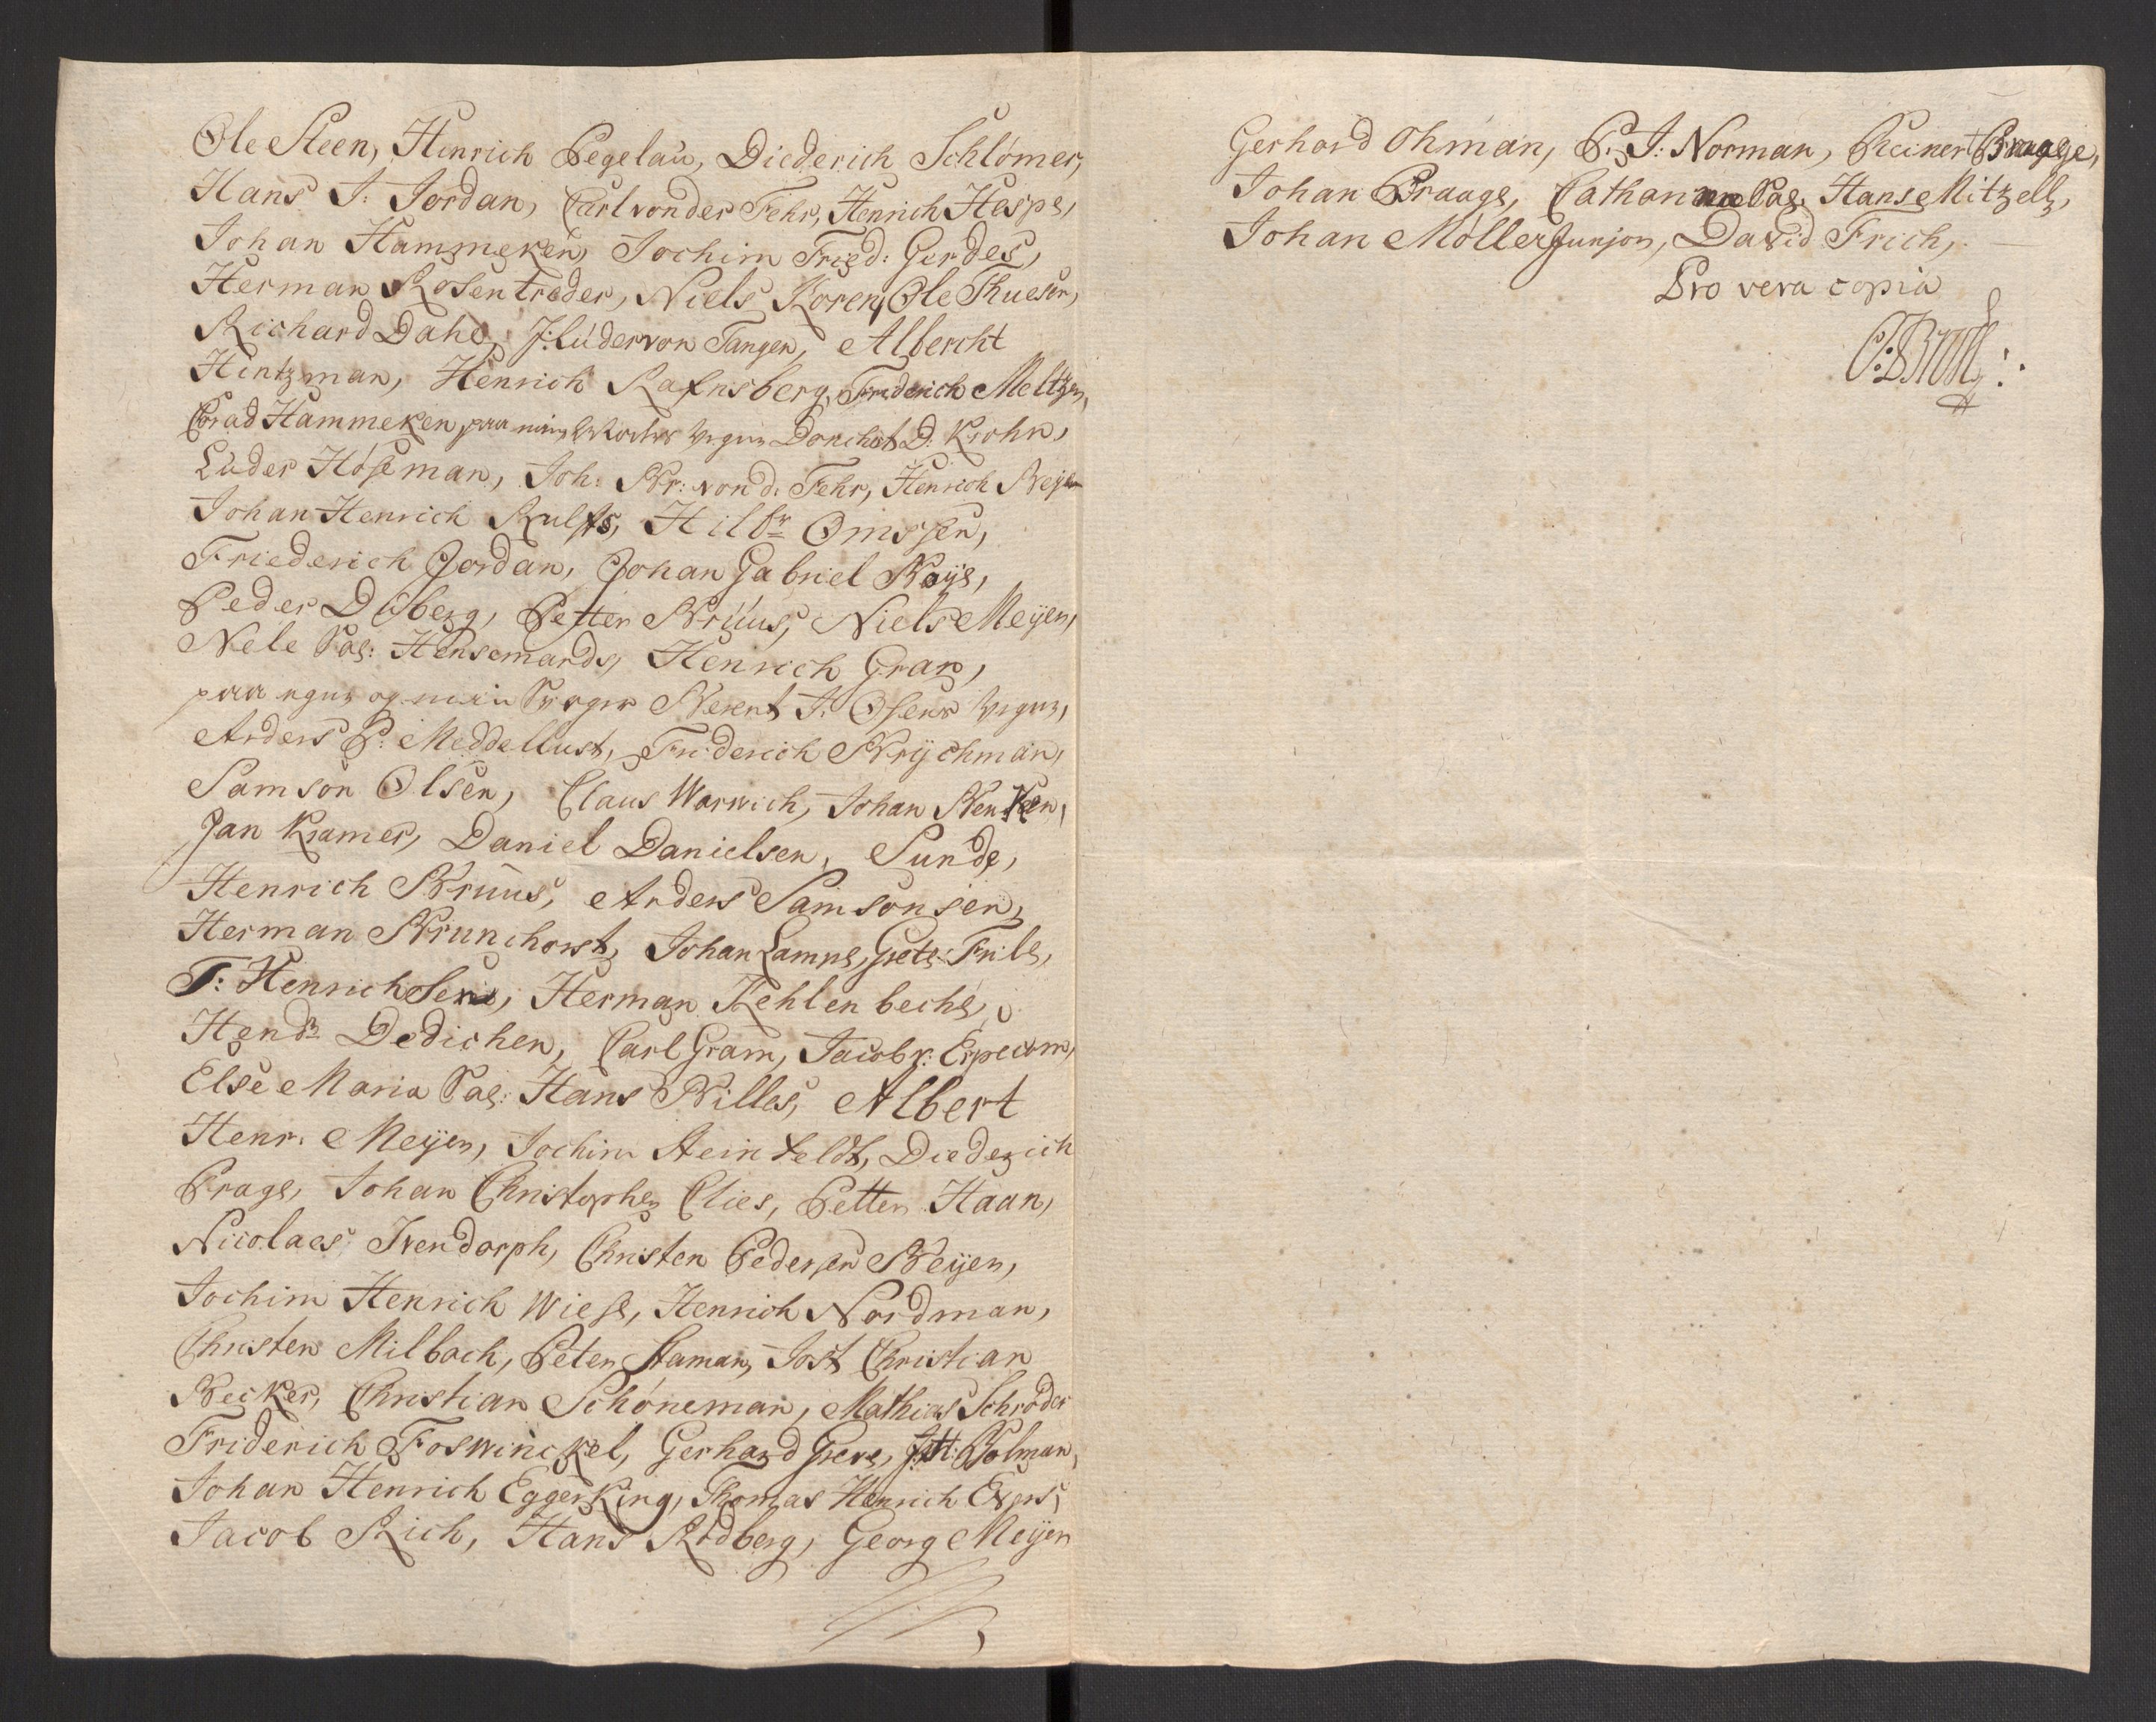 Ole Steen, Hinrich Pegelau, Diederich Schlömer,
Hans J: Jordan, Carl von der Fehr, Henrich Hespe,
Johan Hammeken, Jochim Fried: Gerdes,
Herman Rosentreder, Niels Koren, Ole Thuesen,
Richard Dahl, J: Lüder von Tangen, Albercht
Hintzman, Henrich Rafnsberg, Friderich Meltzer,
Corad Hammeken paa min Moders Vegne D. Krohn,
Lüder Höseman, Joh: Br: von d: Fehr, Henrich Beyer
Johan Henrich Rulffs, Hilbr Omssen,
Friederich Jordan, Johan Gabriel Boye,
Peder Döberg, Petter Brüüs, Niels Meyer,
Nele Sal: Hensemands, Henrich Gran,
paa egne og min Svoger Berent J: Olsens Vegne,
Anders P: Meddellust, Friderich Brychman,
Samson Olsen, Claus Warwich, Johan Benken,
Jan Kramer, Daniel Danielsen, Sunde,
Henrich Brüüs, Anders Samsonsen,
Herman Brunchorst, Johan Lampe, Grete Friles,
T: Henrichsen, Herman Kehlenbeche,
Hendr Dedichen, Carl Gram, Jacob v: Erpecom,
Else Maria Sal: Hans Billes, Albert
Henr. Meyer, Jochim Steinfeldt, Diederich
Prage, Johan Christopher Clies, Petter Haan,
Nicolaes Ivendorph, Christen Pedersen Beyer,
Jochim Henrich Wiese, Henrich Nordman,
Christen Milbach, Peter Haman, Jost Christian
Becker, Christian Schöneman, Mathias Schröder
Friderich Foswinckel, Gerhard Greve, J: H: Bolman,
Johan Henrich Eggerking, Thomas Henrich Evers,
Jacob Rich, Hans Rodberg, Georg Meyer
Gerhard Ohman, P. J: Norman, Reinert Braage,
Johan Praage, Catharina Sal. Hans Mitzell,
Johan Möller Junior, David Frich,
Pro vera copia